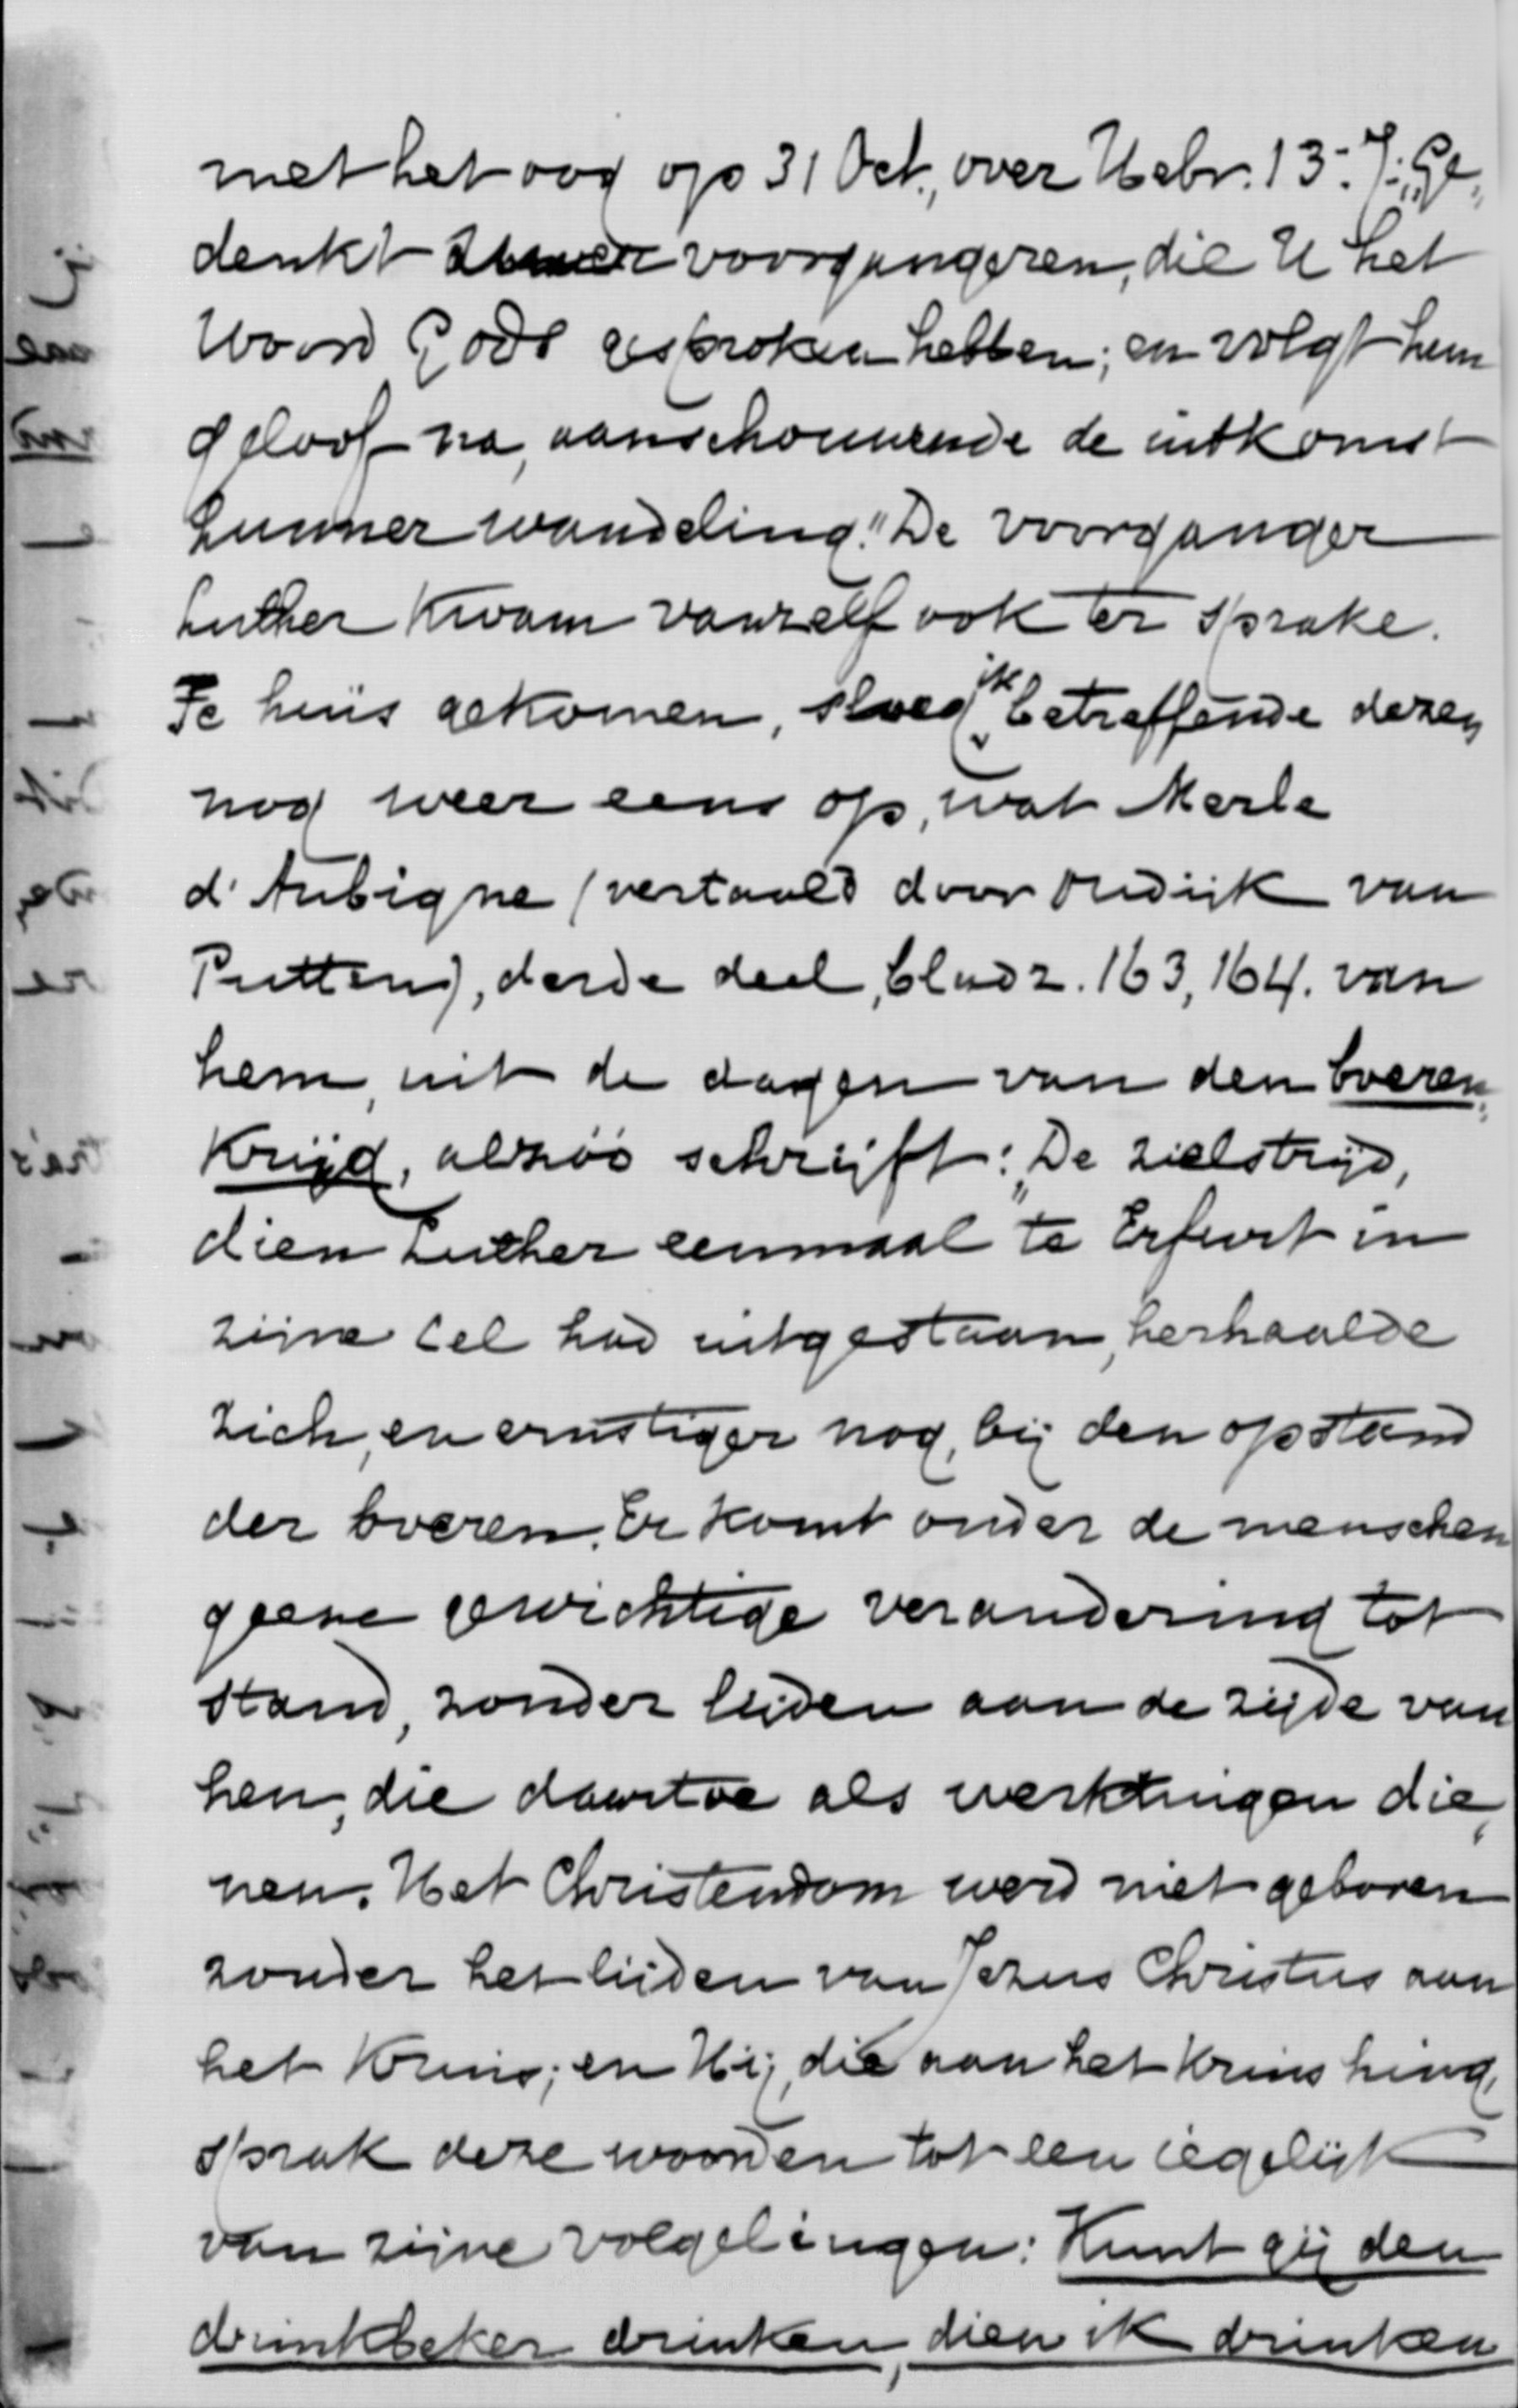 met het oog op 31 Oct., over Hebr. 13:7: „Ge„
denkt uwer voorgangeren, die U het
Woord Gods gesproken hebben; en volgt hun
geloof na, aanschouwende de uitkomst
hunner wandeling." De voorganger
Luther kwam vanzelf ook ter sprake.
Te huis gekomen, sloeg ik betreffende dezen
nog weer eens op, wat Merle
d'Aubigne (vertaald door Oudijk van
Putten), derde deel, bladz. 163, 164. van
hem, uit de dagen van den boeren„
krijg, alzóó schrijft: „De zielstrijd,
dien Luther eenmaal te Erfurt in
zijne cel had uitgestaan, herhaalde
zich, en ernstiger nog, bij den opstand
der boeren. Er komt onder de menschen
geene gewichtige verandering tot
stand, zonder lijden aan de zijde van
hen, die daartoe als werktuigen die„
nen. Het Christendom werd niet geboren
zonder het lijden van Jezus Christus aan
het kruis; en Hij, die aan het kruis hing,
sprak deze woorden tot een iegelijk
van zijne volgelingen: Kunt gij den
drinkbeker drinken, dien ik drinken